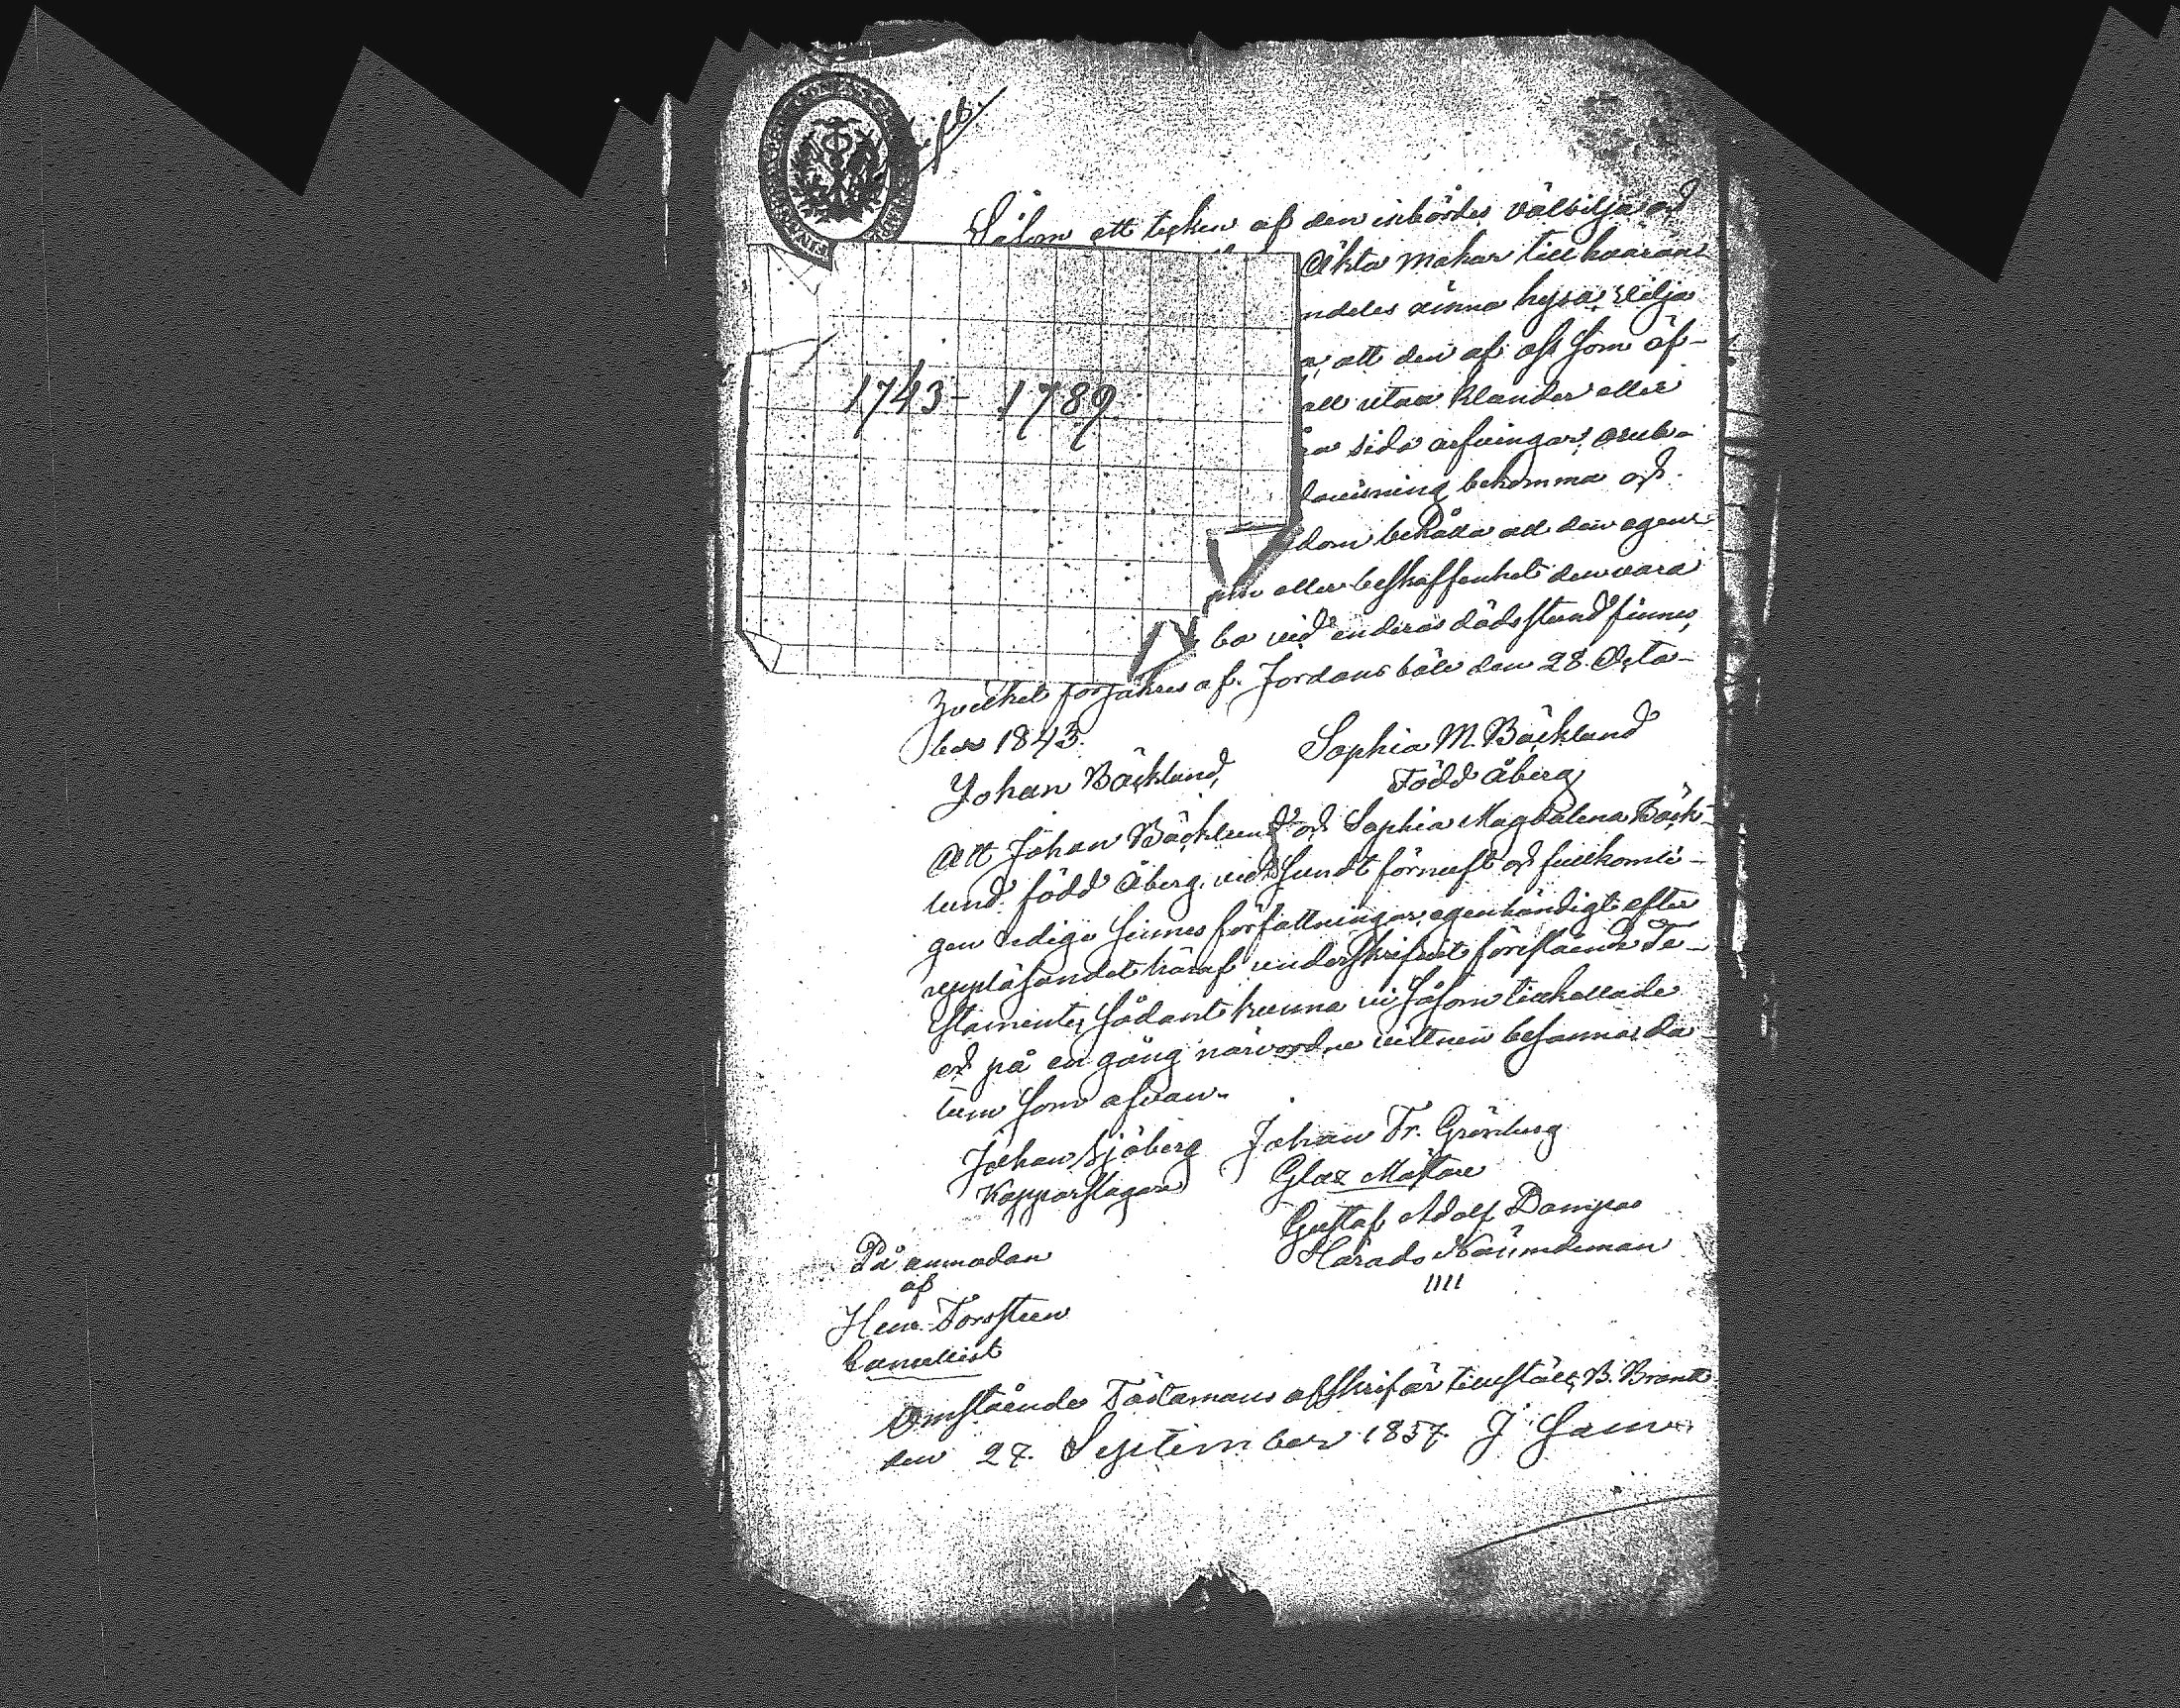 Såsom ett tecken af den inbördes välvilja och
Äkta makar till hvaran
ndeles ämna hysa, vilja
att den af oss som öf-
all utan klander eller
sido arfvingar, orub-
bekomma och
dom behålla all den egen-
eller beskaffenhet den vara
bo vid enderas dödsstund finnes,
1743 - 1789
hvilket försäkras af. Jordans böle den 28 Octo-
ber 1843.
Johan Bäcklund,
Sophia M. Bäcklund
Född Åberg
Att Johan Bäcklund och Sophia Magdalena Bäck-
lund född Åberg, vid sundt förnuft och fullkomli-
gen redige sinnes författningar, egenhändigt efter
uppläsandet häraf underskrifvit förestående Te-
stamente, sådant kunna vi såsom tillkallade
och på en gång närvordne vittnen besanna, da-
tum som ofvan.
Johan Sjöberg
Kopparslagare
Johan Fr. Grönberg
Glas Mästare
Gustaf Adolf Dampas
Härads Nämndeman
På anmodan
af
Henr. Forssteen
Cancellist
Omstående Testamens afskrif är tillstäld B. Brandt
den 27. September 1857.